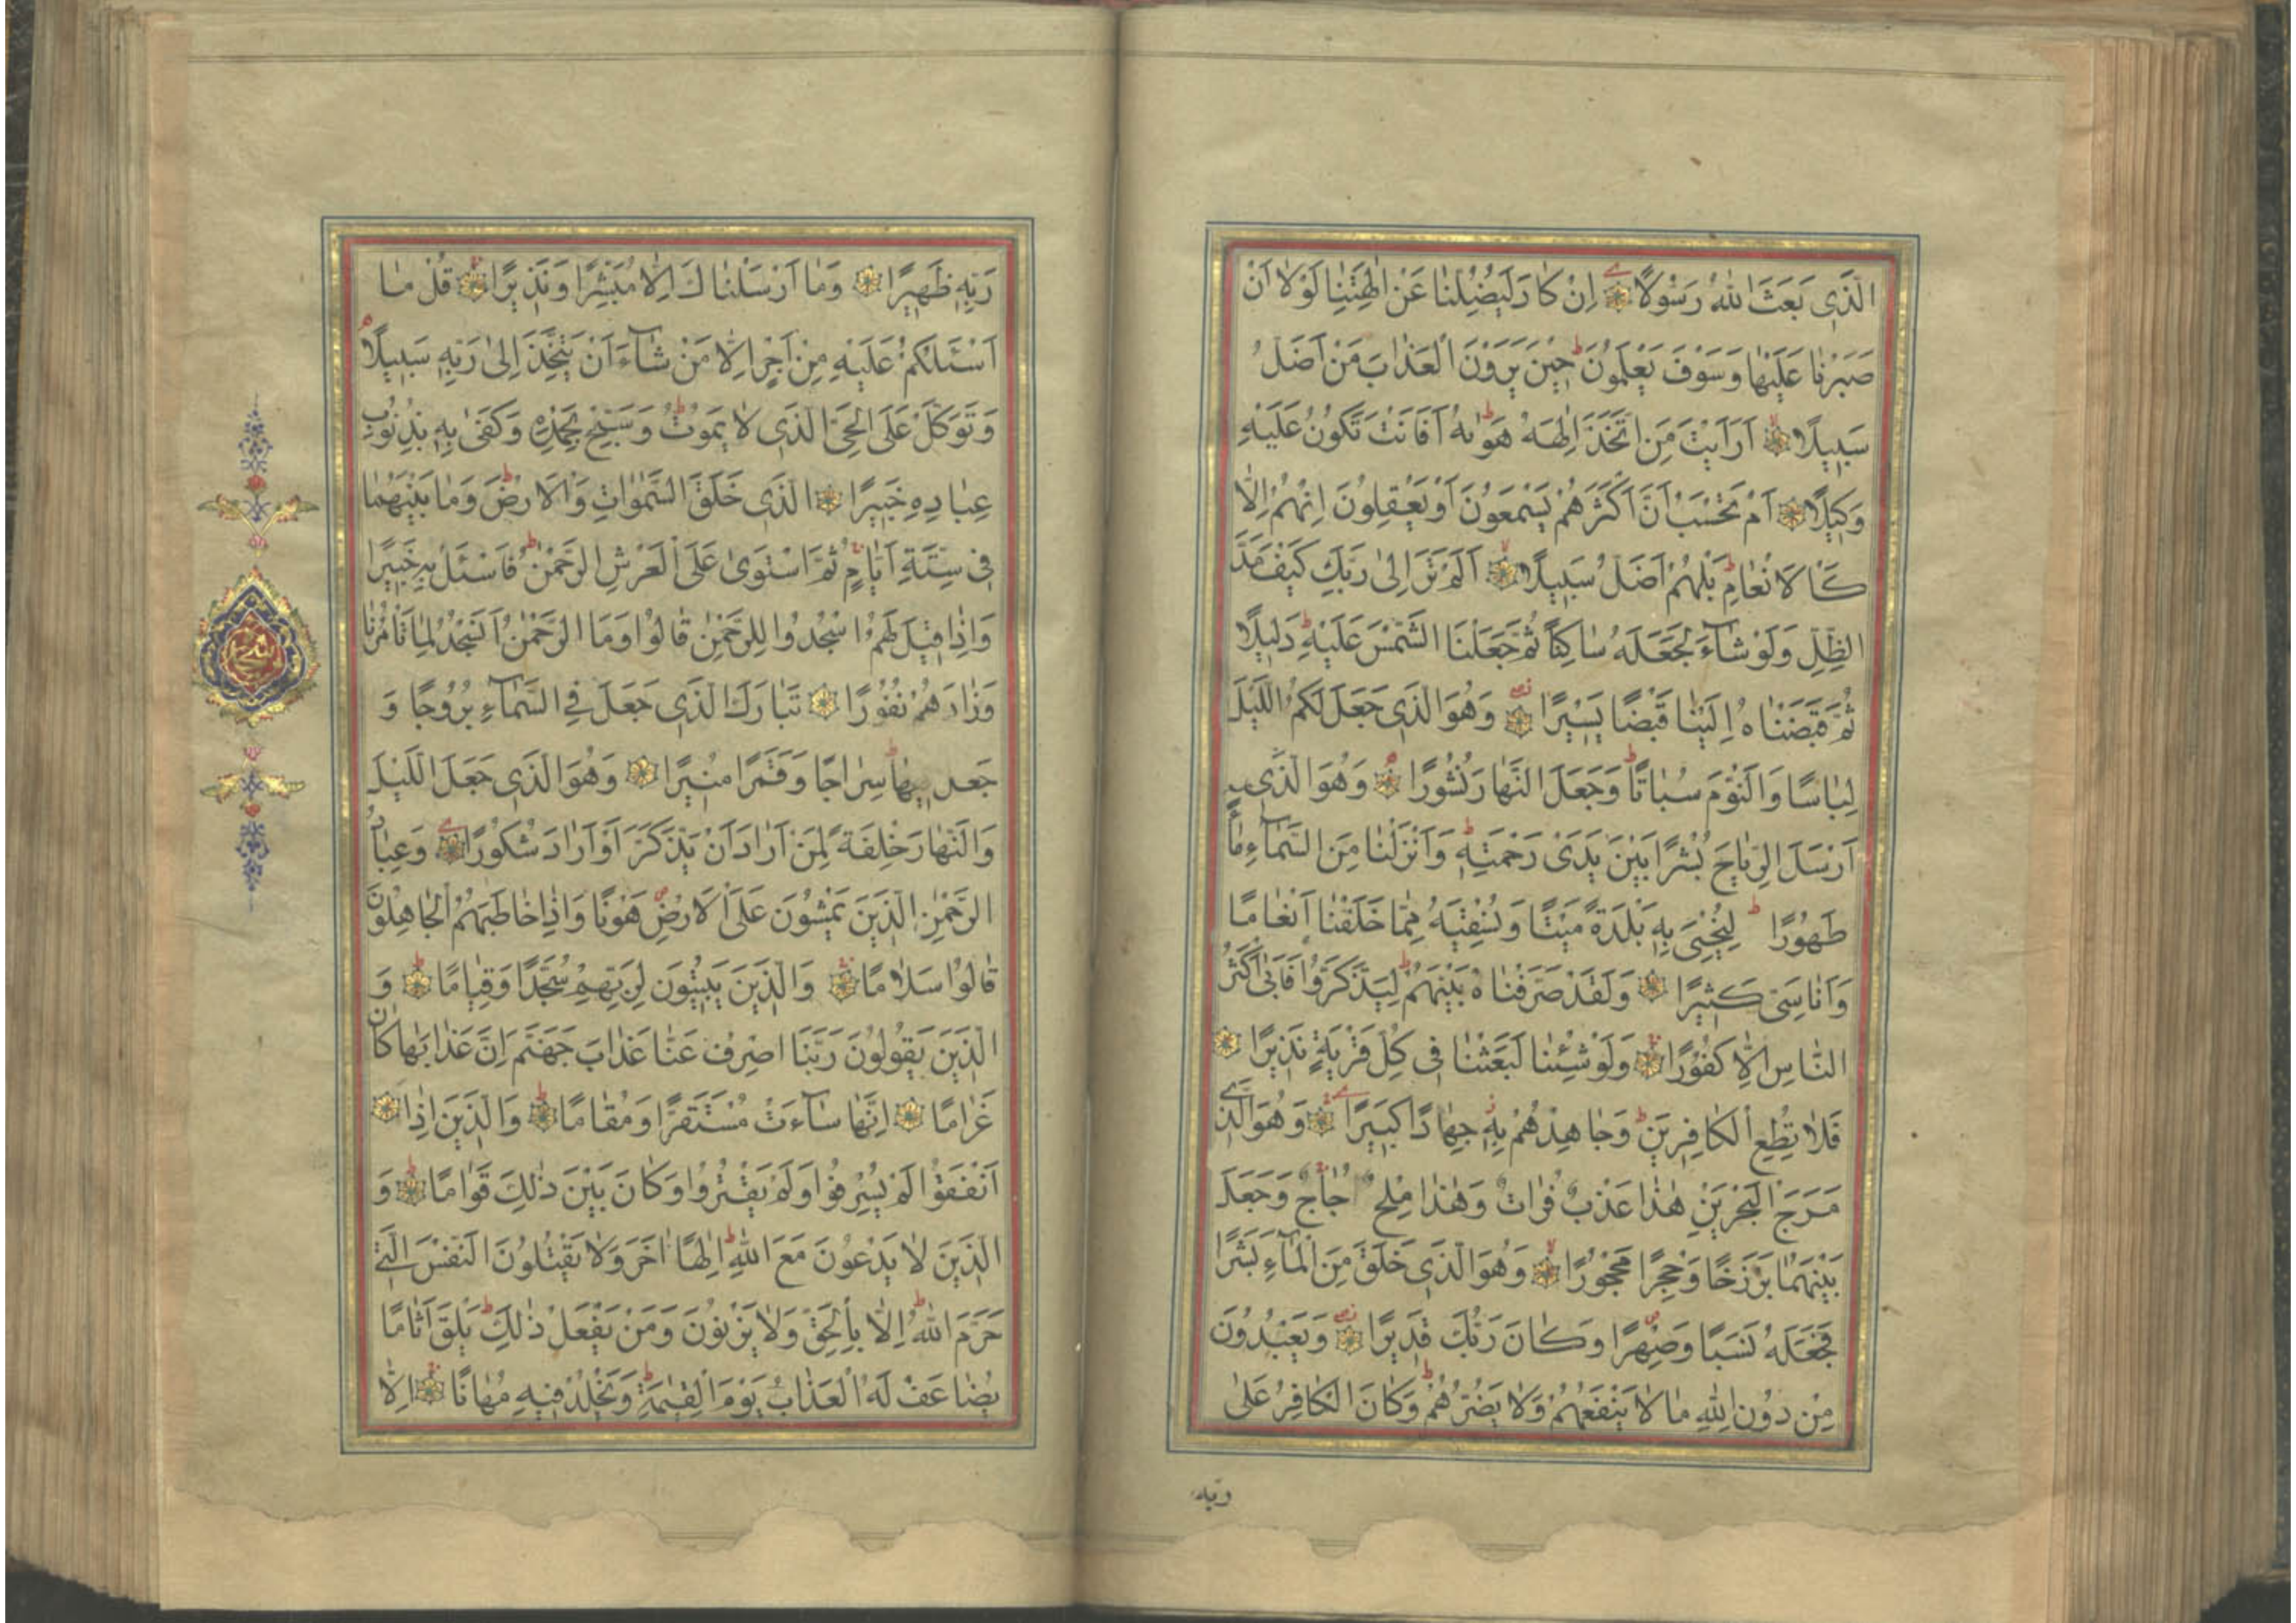 الَّذِي بَعَثَ اللهُ رَسُولًا اِنْ كَادَ لَيُضِلُّنَا عَنْ اٰلِهَتِنَا لَوْلَا اَنْ
صَبَرْنَا عَلَيْهَا وَسَوْفَ يَعْلَمُونَ حِينَ يَرَوْنَ الْعَذَابَ مَنْ اَضَلُّ
سَبِيلًا اَرَاَيْتَ مَنِ اتَّخَذَ اِلٰهَهُ هَوٰيهُ اَفَاَنْتَ تَكُونُ عَلَيْهِ
وَكِيلًا اَمْ تَحْسَبُ اَنَّ اَكْثَرَهُمْ يَسْمَعُونَ اَوْ يَعْقِلُونَ اِنْهُمْ اِلَّا
كَالْاَنْعَامِ بَلْهُمْ اَضَلُّ سَبِيلًا اَلَمْ تَرَ اِلٰى رَبِّكَ كَيْفَ مَدَّ
الظِّلَّ وَلَوْ شَآءَ لَجَعَلَهُ سَاكِنًا ثُمَّ جَعَلْنَا الشَّمْسَ عَلَيْهِ دَلِيلًا
ثُمَّ قَبَضْنَاهُ اِلَيْنَا قَبْضًا يَسِيرًا وَهُوَ الَّذِي جَعَلَ لَكُمُ اللَّيْلَ
لِبَاسًا وَالنَّوْمَ سُبَاتًا وَجَعَلَ النَّهَارَ نُشُورًا وَهُوَ الَّذِي
اَرْسَلَ الرِّيَاحَ بُشْرًا بَيْنَ يَدَيْ رَحْمَتِهِ وَاَنْزَلْنَا مِنَ السَّمَآءِ مَآءً
طَهُورًا لِنُحْيِيَ بِهِ بَلْدَةً مَيْتًا وَنُسْقِيَهُ مِمَّا خَلَقْنَا اَنْعَامًا
وَاَنَاسِيَّ كَثِيرًا وَلَقَدْ صَرَّفْنَاهُ بَيْنَهُمْ لِيَذَّكَّرُوا فَاَبٰى اَكْثَرُ
النَّاسِ اِلَّا كُفُورًا وَلَوْ شِئْنَا لَبَعَثْنَا فِي كُلِّ قَرْيَةٍ نَذِيرًا
فَلَا تُطِعِ الْكَافِرِينَ وَجَاهِدْهُمْ بِهِ جِهَادًا كَبِيرًا وَهُوَ الَّذِي
مَرَجَ الْبَحْرَيْنِ هٰذَا عَذْبٌ فُرَاتٌ وَهٰذَا مِلْحٌ اُجَاجٌ وَجَعَلَ
بَيْنَهُمَا بَرْزَخًا وَحِجْرًا مَحْجُورًا وَهُوَ الَّذِي خَلَقَ مِنَ الْمَآءِ بَشَرًا
فَجَعَلَهُ نَسَبًا وَصِهْرًا وَكَانَ رَبُّكَ قَدِيرًا وَيَعْبُدُونَ
مِنْ دُونِ اللهِ مَا لَا يَنْفَعُهُمْ وَلَا يَضُرُّهُمْ وَكَانَ الْكَافِرُ عَلٰى
ربه
رَبِّهِ ظَهِيرًا وَمَا اَرْسَلْنَاكَ اِلَّا مُبَشِّرًا وَنَذِيرًا قُلْ مَا
اَسْئَلُكُمْ عَلَيْهِ مِنْ اَجْرٍ اِلَّا مَنْ شَآءَ اَنْ يَتَّخِذَ اِلٰى رَبِّهِ سَبِيلًا
وَتَوَكَّلْ عَلَى الْحَيِّ الَّذِي لَا يَمُوتُ وَسَبِّحْ بِحَمْدِهِ وَكَفٰى بِهِ بِذُنُوبِ
عِبَادِهِ خَبِيرًا الَّذِي خَلَقَ السَّمٰوَاتِ وَالْاَرْضَ وَمَا بَيْنَهُمَا
فِي سِتَّةِ اَيَّامٍ ثُمَّ اسْتَوٰى عَلَى الْعَرْشِ الرَّحْمٰنُ فَاسْئَلْ بِهِ خَبِيرًا
وَاِذَا قِيلَ لَهُمُ اسْجُدُوا لِلرَّحْمٰنِ قَالُوا وَمَا الرَّحْمٰنُ اَنَسْجُدُ لِمَا تَاْمُرُنَا
وَزَادَهُمْ نُفُورًا تَبَارَكَ الَّذِي جَعَلَ فِي السَّمَآءِ بُرُوجًا وَ
جَعَلَ فِيهَا سِرَاجًا وَقَمَرًا مُنِيرًا وَهُوَ الَّذِي جَعَلَ اللَّيْلَ
وَالنَّهَارَ خِلْفَةً لِمَنْ اَرَادَ اَنْ يَذَّكَّرَ اَوْ اَرَادَ شُكُورًا وَعِبَادُ
الرَّحْمٰنِ الَّذِينَ يَمْشُونَ عَلَى الْاَرْضِ هَوْنًا وَاِذَا خَاطَبَهُمُ الْجَاهِلُونَ
قَالُوا سَلَامًا وَالَّذِينَ يَبِيتُونَ لِرَبِّهِمْ سُجَّدًا وَقِيَامًا وَ
الَّذِينَ يَقُولُونَ رَبَّنَا اصْرِفْ عَنَّا عَذَابَ جَهَنَّمَ اِنَّ عَذَابَهَا كَانَ
غَرَامًا اِنَّهَا سَآءَتْ مُسْتَقَرًّا وَمُقَامًا وَالَّذِينَ اِذَا
اَنْفَقُوا لَمْ يُسْرِفُوا وَلَمْ يَقْتُرُوا وَكَانَ بَيْنَ ذٰلِكَ قَوَامًا وَ
الَّذِينَ لَا يَدْعُونَ مَعَ اللهِ اِلٰهًا اٰخَرَ وَلَا يَقْتُلُونَ النَّفْسَ الَّتِي
حَرَّمَ اللهُ اِلَّا بِالْحَقِّ وَلَا يَزْنُونَ وَمَنْ يَفْعَلْ ذٰلِكَ يَلْقَ اَثَامًا
يُضَاعَفْ لَهُ الْعَذَابُ يَوْمَ الْقِيٰمَةِ وَيَخْلُدْ فِيهِ مُهَانًا اِلَّا